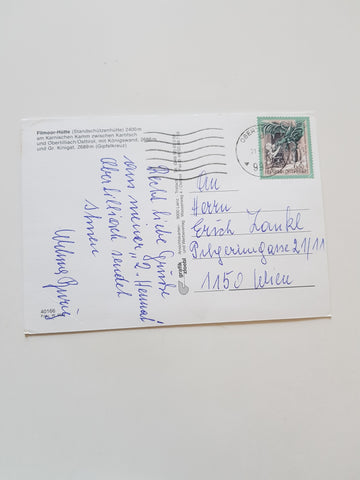 Filmoor-Hütte (Standschützenhütte) 2400 m
am Karnischen Kamm zwischen Kartitsch
und Obertilliach Osttirol, mit Königswand, 2686 m
und Gr. Kinigat, 2689 m (Gipfelkreuz)
Recht liebe Grüße
aus meiner „2. Heimat"
Obertilliach sendet
Ihnen
40166
An
Herrn
Erich Zankl
Pilgerimgasse 21/11
1150 Wien